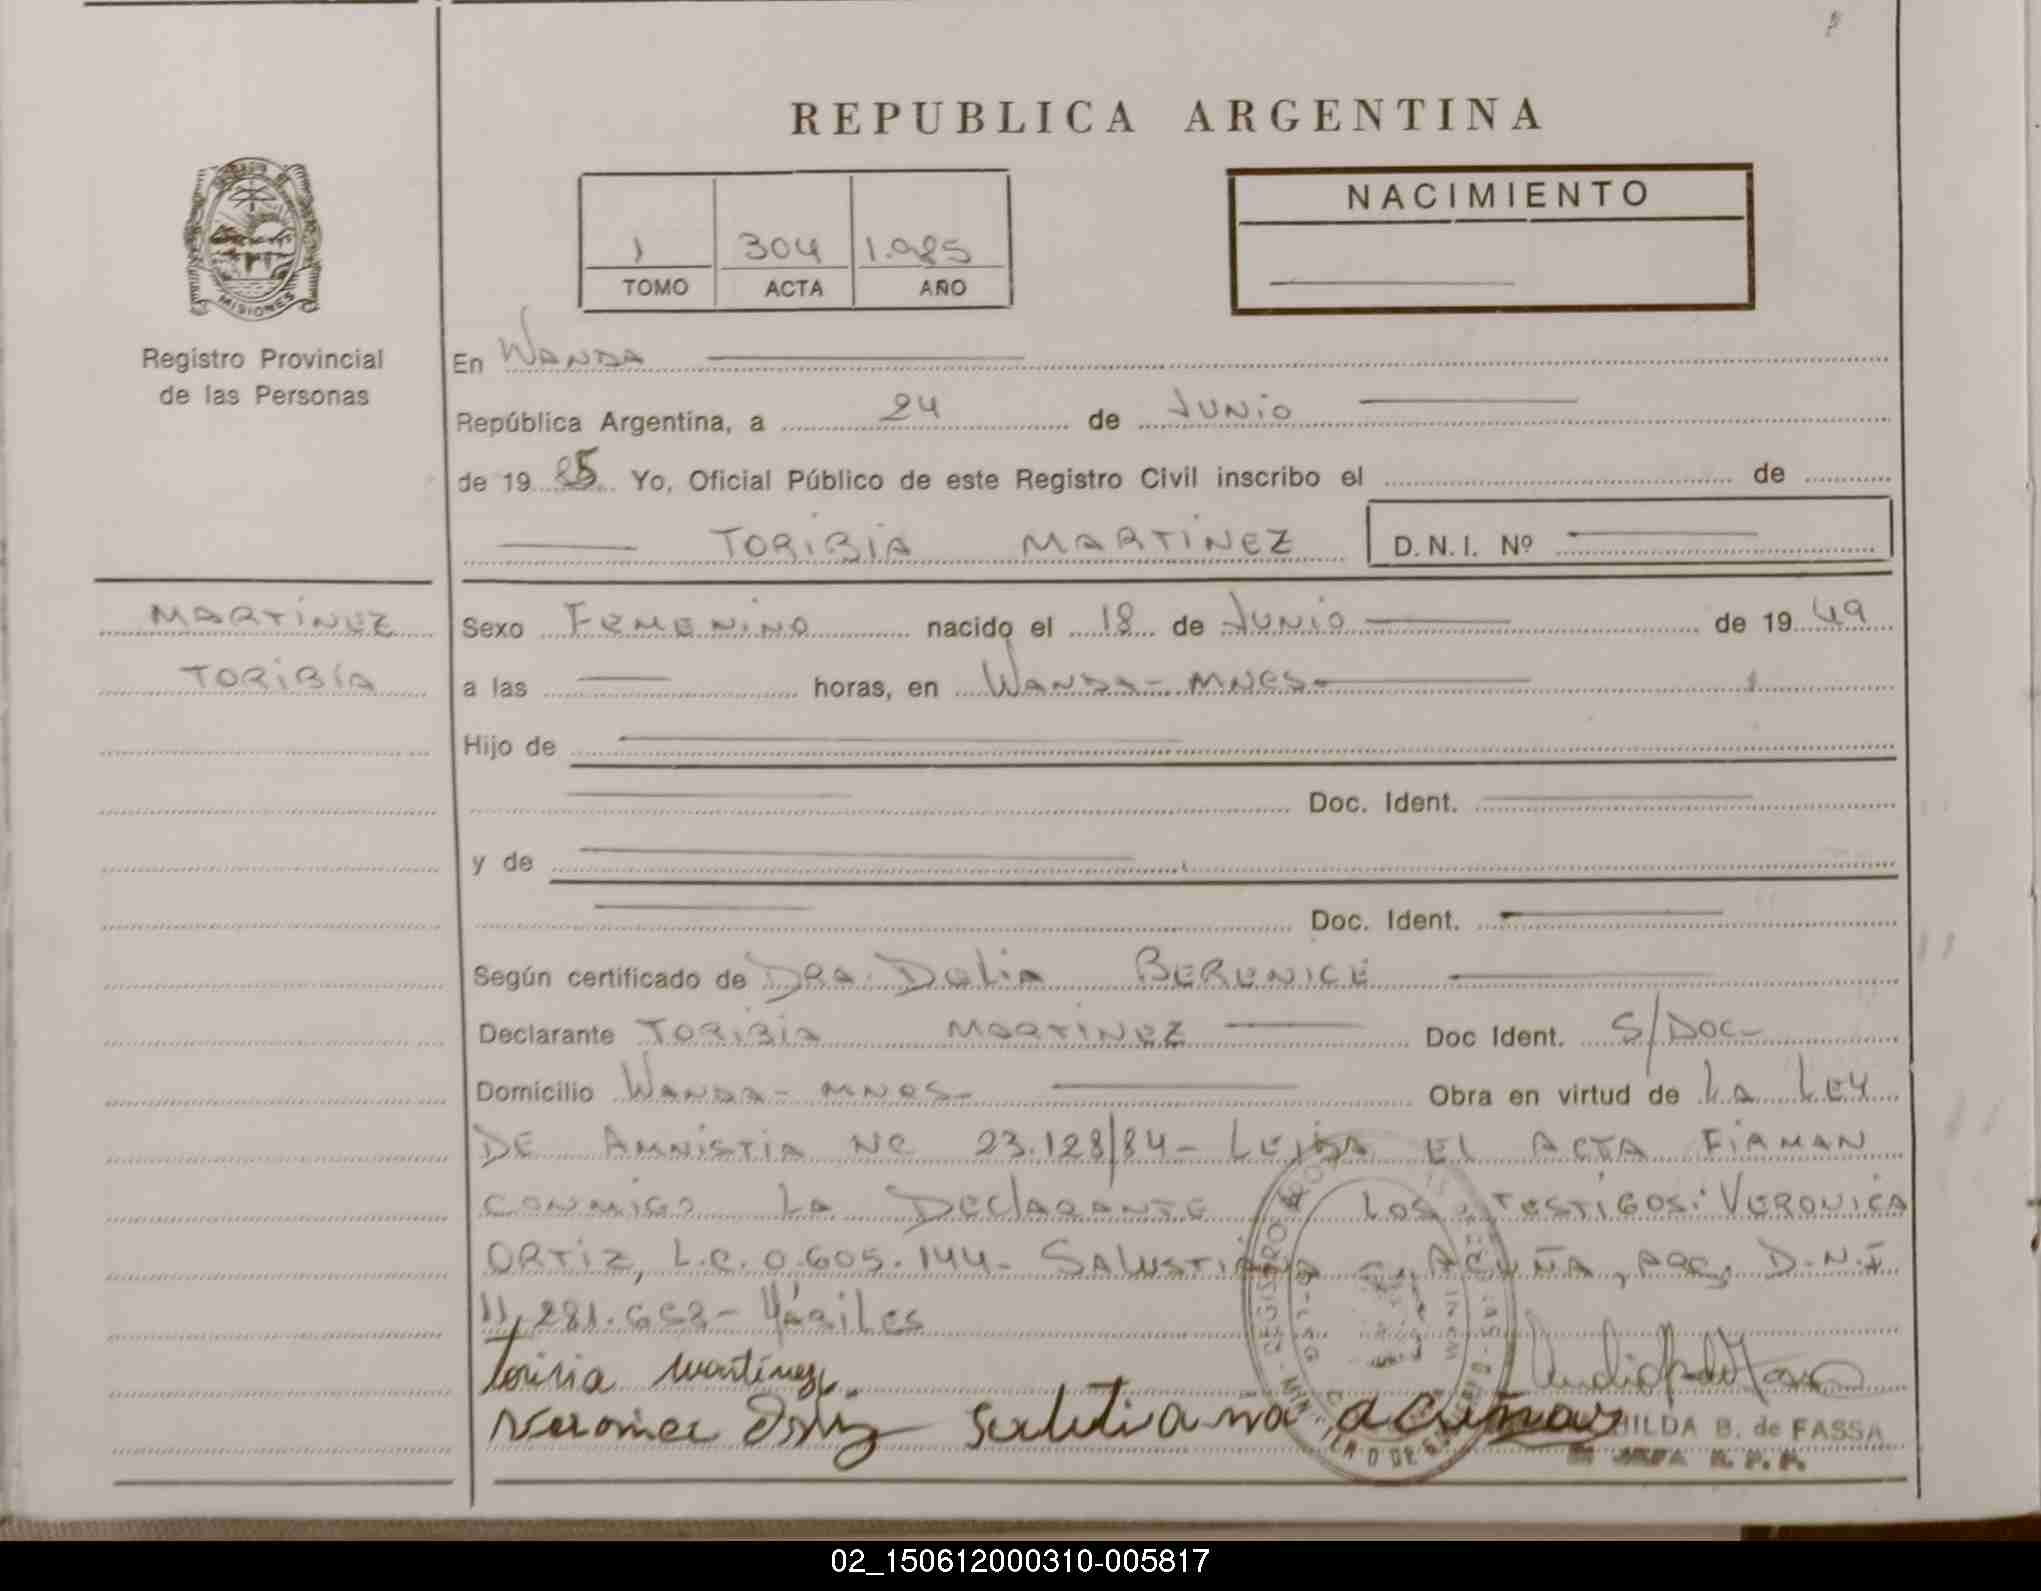 REPUBLICA ARGENTINA
MISIONES
Registro Provincial
de las Personas
1 304 1.985
TOMO ACTA AÑO
NACIMIENTO
En WANDA
República Argentina, a 24 de JUNIO
de 19 85 Yo, Oficial Público de este Registro Civil inscribo el de
TORIBIA MARTINEZ D.N.I. Nº
MARTINEZ
TORIBIA
Sexo FEMENINO nacido el 18 de JUNIO de 19 49
a las horas, en WANDA - MNES-
Hijo de
Doc. Ident.
y de
Doc. Ident.
Según certificado de DRA. Delia BERENICE
Declarante TORIBIA MARTINEZ Doc Ident. S/DOC-
Domicilio WANDA - MNES- Obra en virtud de LA LEY
DE AMNISTIA Nº 23.128/84- LEIDA EL ACTA FIRMAN
CONMIGO LA DEClARANTE LOS TESTIGOS: VERONICA
ORTIZ, L.C. 0.605.144- SALUSTIANA ACUÑA, ARG, D.N.I
11,281.653-
Toribia Martinez
Veronica Ortiz Salutiana acuña
HILDA B. de FASSA
JEFA R. P. P.
02_150612000310-005817